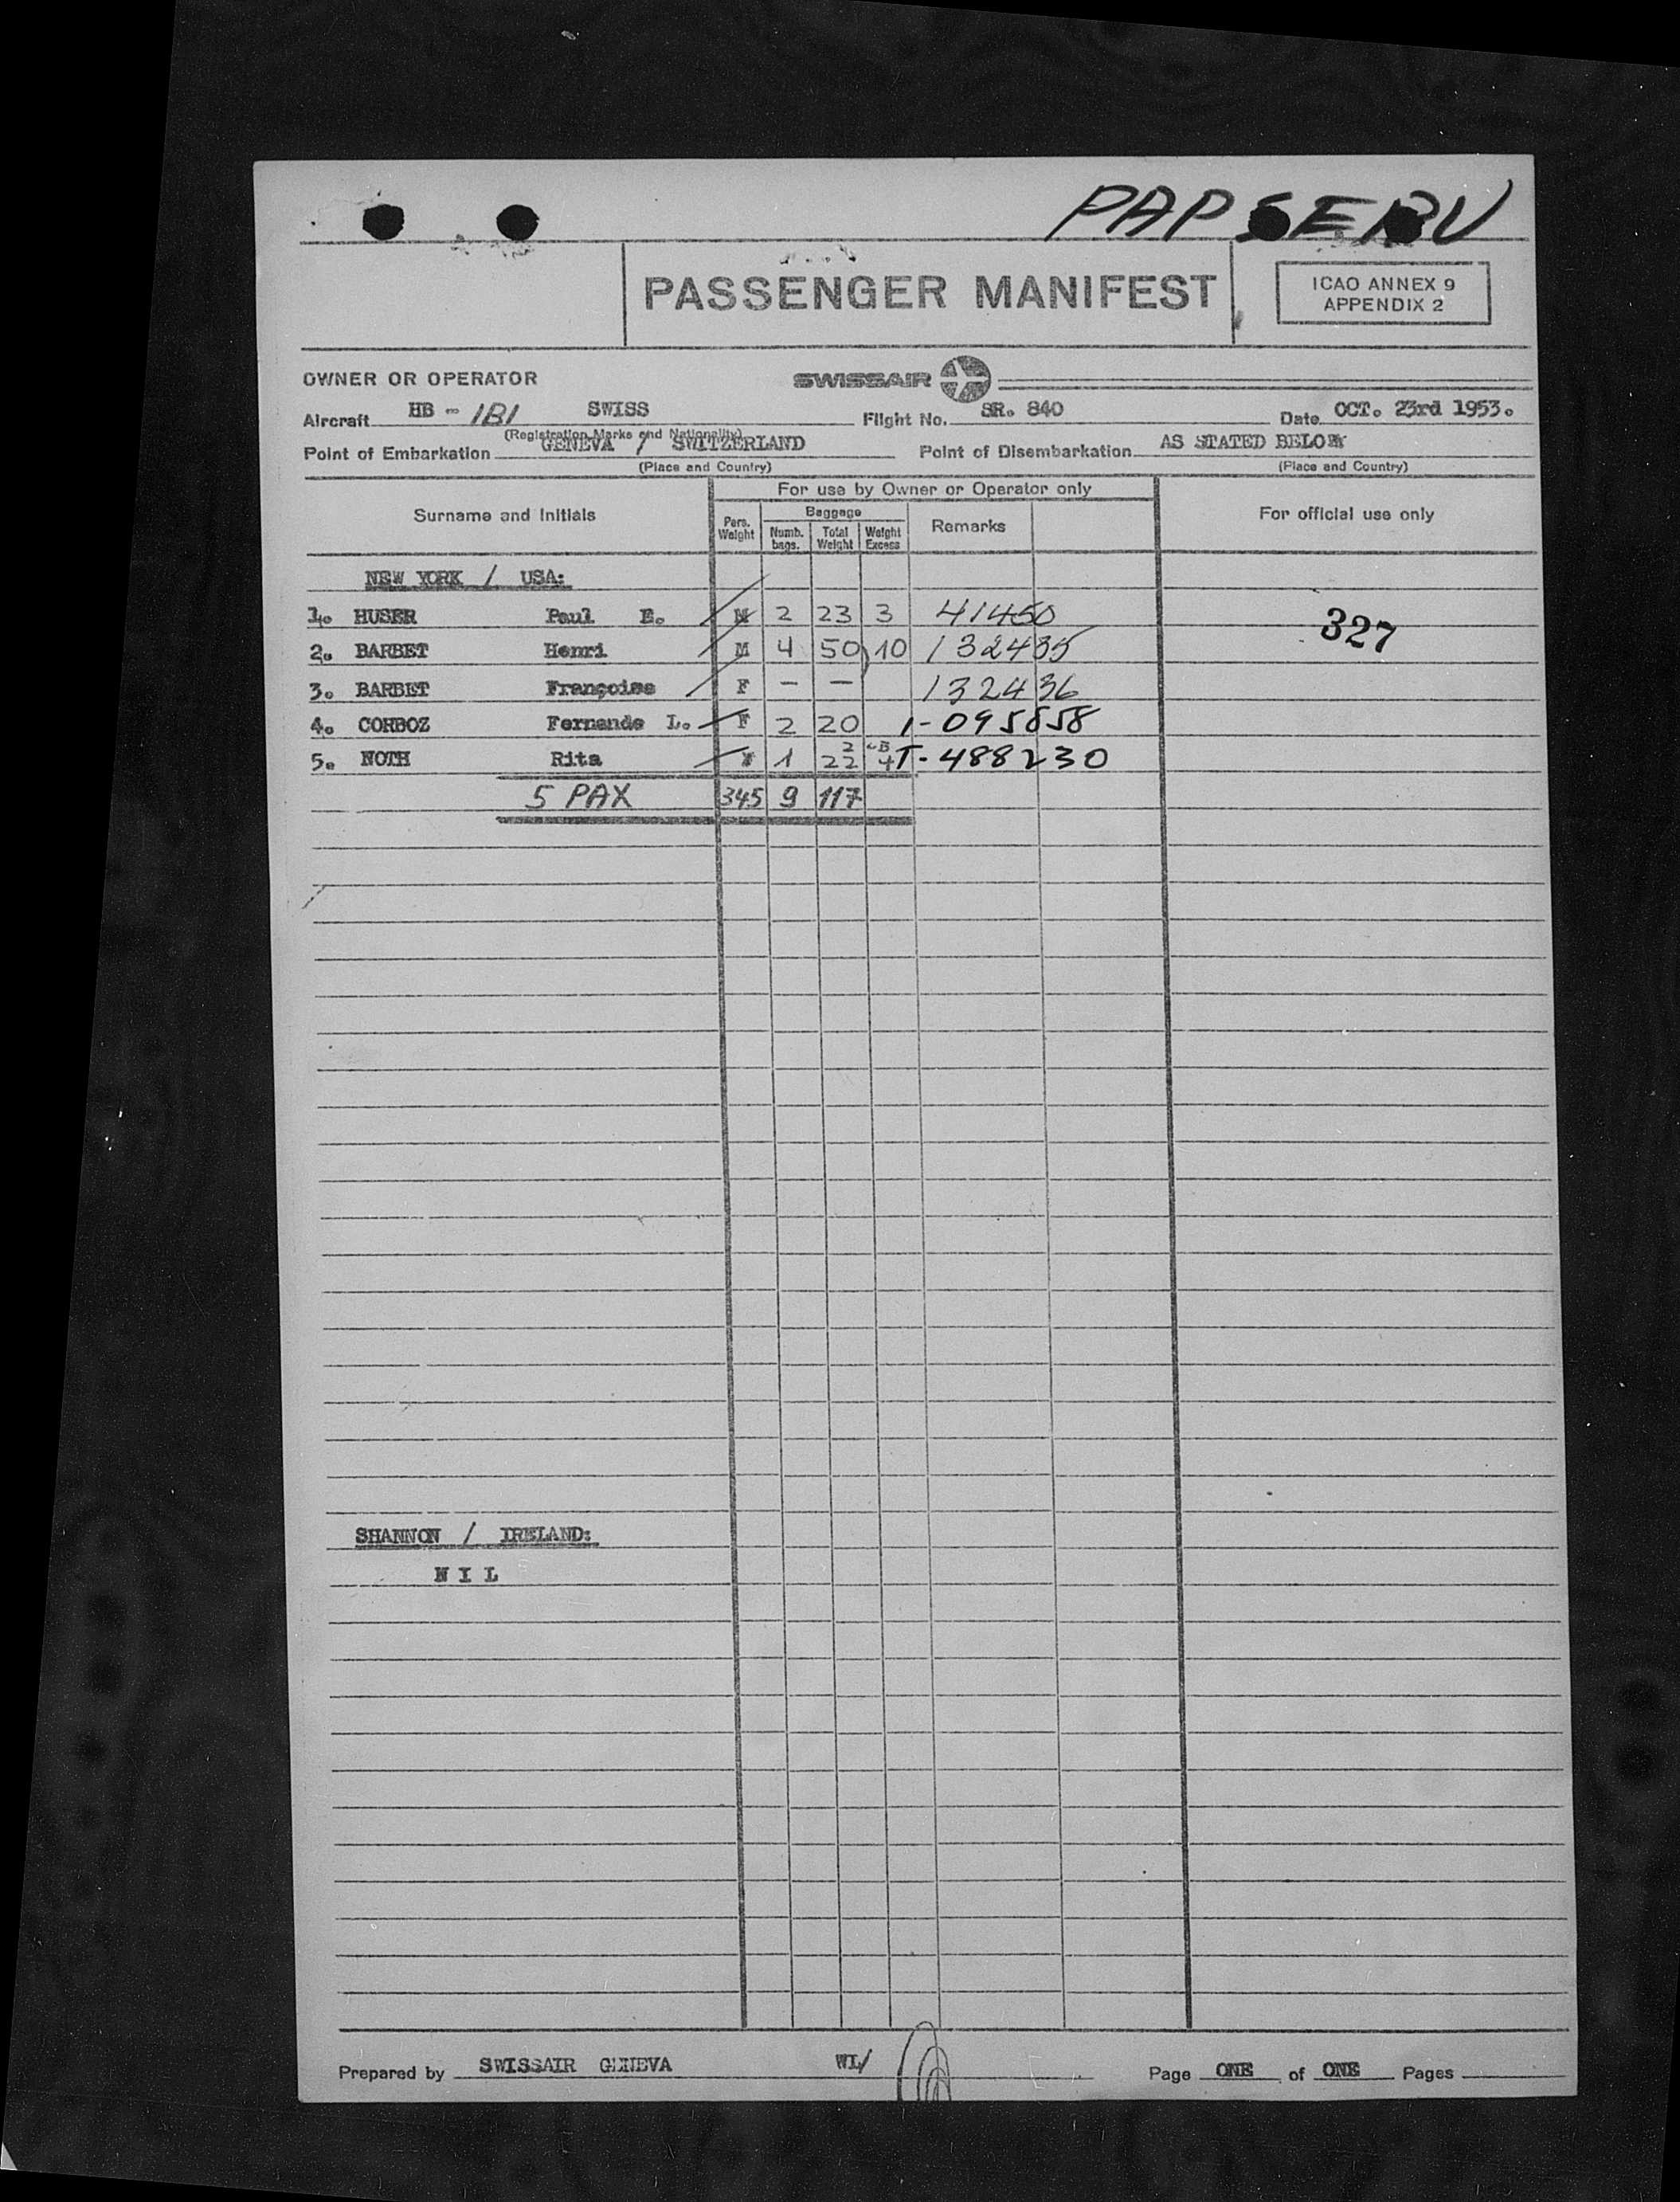 PAPSERV
PASSENGER MANIFEST
ICAO ANNEX 9
APPENDIX 2
OWNER OR OPERATOR SWISSAIR
Aircraft HB - IBI SWISS Flight No. SR. 840 Date OCT. 23rd 1953.
(Registration Marks and Nationality)
Point of Embarkation GENEVA / SWITZERLAND Point of Disembarkation AS STATED BELOW
(Place and Country) (Place and Country)
For use by Owner or Operator only
Surname and Initials Pers. Weight Baggage Numb. bags. Total Weight Weight Excess Remarks For official use only
NEW YORK / USA:
1. HUSER Paul E. M 2 23 3 41450 327
2. BARBET Henri M 4 50 10 132435
3. BARBET Françoise F — — 132436
4. CORBOZ Fernande L. F 2 20 1-095858
5. NOTH Rita 1 22 T-488230
5 PAX 345 9 117
SHANNON / IRELAND:
N I L
Prepared by SWISSAIR GENEVA WL/ Page ONE of ONE Pages